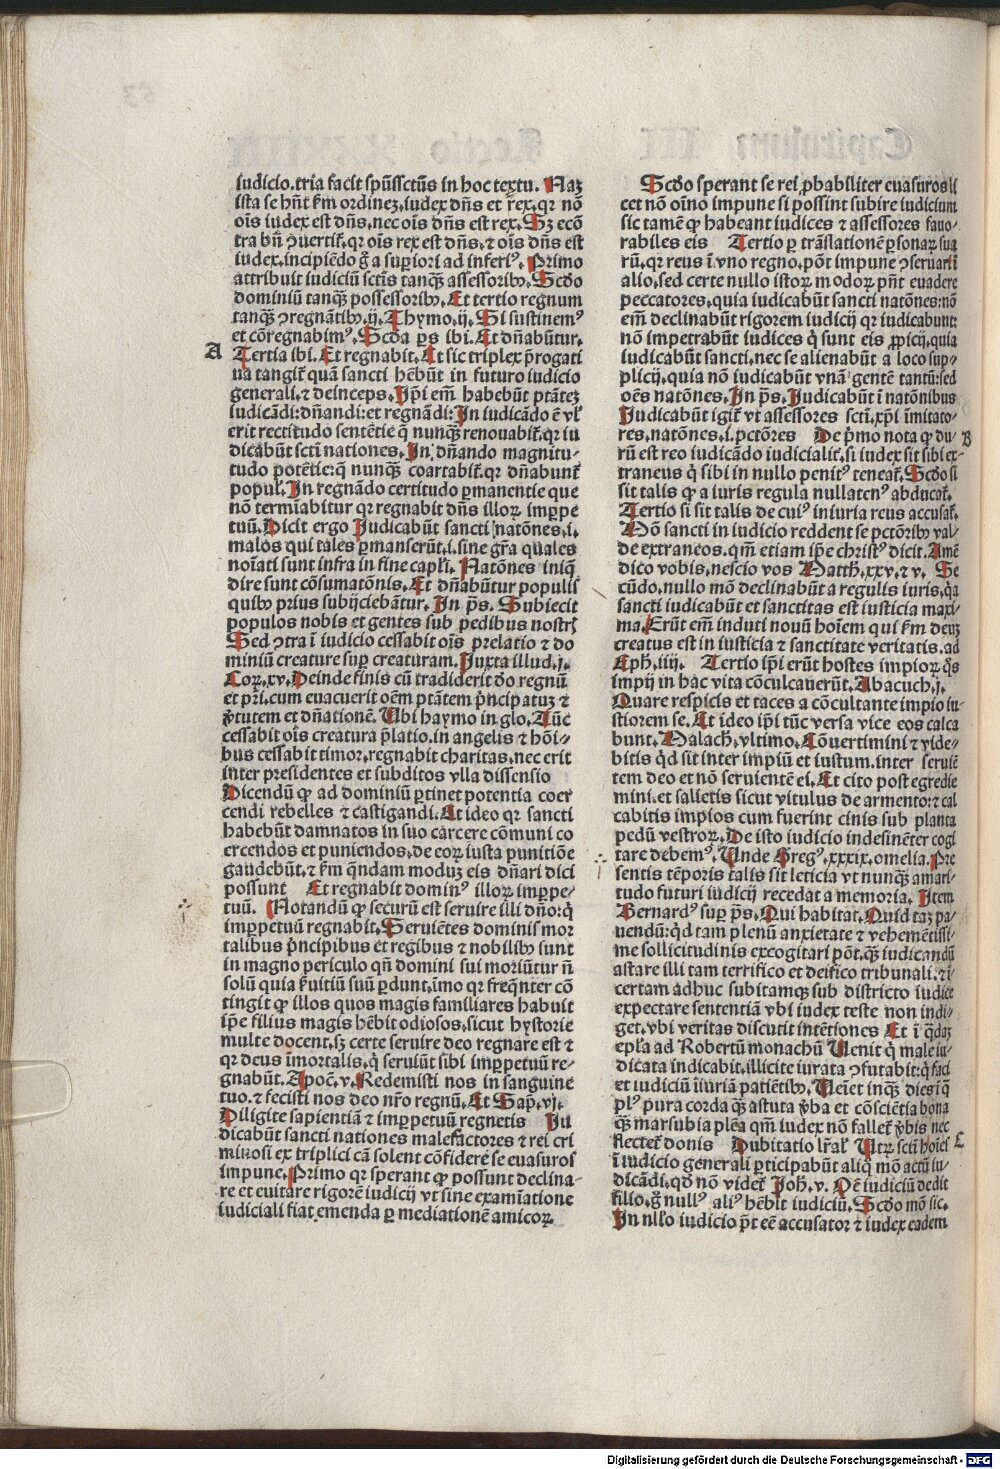 iudicio.tria facit spūssctūs in hoc textu. Naꝫ
ista se hn̄t ẜm ordineꝫ.iudex dn̄s et rex.qꝛ nō
oīs iudex est dn̄s,nec oīs dn̄s est rex. Sꝫ ecō
tra bn̄ ꝯuertit̄.qꝛ oīs rex est dn̄s.⁊ oīs dn̄s est
iudex.incipiēdo g̃ a suꝑiori ad inferiꝰ. Primo
attribuit iudiciū sctīs tanqꝫ̄ assessoribꝰ. Scd̄o
dominiū tanqꝫ̄ possessoribꝰ. Et tertio regnum
tanqꝫ̄ ꝯregnātibꝰ.ij. Thymo.ij. Si sustinemꝰ
et cōregnabimꝰ. Scd̄a ps ibi. Et dn̄abūtur.
A
Tertia ibi. Et regnabit. Et sic triplex p̄rogati
ua tangit̄ quā sancti hēbūt in futuro iudicio
generali.⁊ deinceps. Ip̄i em̄ habebūt ptātez
iudicādi:dn̄andi:et regnādi: In iudicādo ē vꝉ
erit rectitudo sentētie q̄ nunqꝫ̄ renouabit̄.qꝛ iu
dicabūt sctī nationes. In dn̄ando magnitu⸗
tudo potētie:q̄ nunqꝫ̄ coartabit̄.qꝛ dn̄abunt̄
popul̄. In regnādo certitudo ꝑmanentie que
nō termīabitur qꝛ regnabit dn̄s illoꝝ imꝑpe
tuū. Dicit ergo Iudicabūt sancti natōnes.i.
malos qui tales ꝑmanserūt.i.sine gr̄a quales
noīati sunt infra in fine capl̄i. Natōnes iniq̄
dire sunt cōsumatōnis. Et dn̄abūtur populis
quibꝰ prius subijciebātur. In ps. Subiecit
populos nobis et gentes sub pedibus nostrꝭ
Sed ꝯtra ī iudicio cessabit oīs prelatio ⁊ do
miniū creature suꝑ creaturam. Iuxta illud.j.
Coꝝ.xv. Deinde finis cū tradiderit do regnū
et pr̄i.cum euacuerit oēm ptātem p̄ncipatuꝫ ⁊
v̄tutem et dn̄ationē. Vbi haymo in glo. Tūc
cessabit oīs creatura p̄latio.in angelis ⁊ hōi⸗
bus cessabit timor.regnabit charitas.nec erit
inter presidentes et subditos vlla dissensio
Dicendū ꝙ ad dominiū ꝑtinet potentia coer
cendi rebelles ⁊ castigandi. Et ideo qꝛ sancti
habebūt damnatos in suo carcere cōmuni co
ercendos et puniendos.de eoꝝ iusta punitiōe
gaudebūt.⁊ ẜm qn̄dam moduꝫ eis dn̄ari dici
possunt Et regnabit dominꝰ illoꝝ imꝑpe⸗
tuū. Notandū ꝙ securū est seruire illi dn̄o:q̄
imꝑpetuū regnabit. Seruiētes dominis mor
talibus p̄ncipibus et regibus ⁊ nobilibꝰ sunt
in magno periculo qn̄ domini sui moriūtur n̄
solū quia ẜuitiū suū ꝑdunt.imo qꝛ freqn̄ter cō
tingit ꝙ illos quos magis familiares habuit
ip̄e filius magis hēbit odiosos.sicut hystorie
multe docent.sꝫ certe seruire deo regnare est ⁊
qꝛ deus īmortalis.q̄ seruiūt sibi imꝑpetuū re⸗
gnabūt. Apoc̄.v. Redemisti nos in sanguine
tuo.⁊ fecisti nos deo nr̄o regnū. Et Sap̄.vj.
Diligite sapientiā ⁊ imꝑpetuū regnetis Iu
dicabūt sancti nationes malefactores ⁊ rei cri
minosi ex triplici cā solent cōfidere se euasuros
impune. Primo qꝛ sperant ꝙ possunt declina⸗
re et euitare rigorē iudicij vt sine examīatione
iudiciali fiat emenda ꝑ mediationē amicoꝝ.
Scd̄o sperant se rei ꝓbabiliter euasuros li
cet nō oīno impune si possint subire iudicium
sic tamē ꝙ habeant iudices ⁊ assessores fauo⸗
rabiles eis Tertio ꝑ trāslationē ꝑsonaꝝ sua
rū.qꝛ reus ī vno regno.pōt impune ꝯseruari ī
alio.sed certe nullo istoꝝ modoꝝ pn̄t euadere
peccatores.quia iudicabūt sancti natōnes:nō
em̄ declinabūt rigorem iudicij qꝛ iudicabunt:
nō impetrabūt iudices q̄ sunt eis ꝓpicij.quia
iudicabūt sancti.nec se alienabūt a loco sup⸗
plicij.quia nō iudicabūt vnā gentē tantū:sed
oēs natōnes. In ps. Iudicabūt ī natōnibus
Iudicabūt igit̄ vt assessores sctī.xp̄i īmitato⸗
res.natōnes.i.pctōres De p̄mo nota ꝙ du⸗
B
rū est reo iudicādo iudicialit̄.si iudex sit sibi ex⸗
traneus q̄ sibi in nullo penitꝰ teneat̄. Scd̄o si
sit talis ꝙ a iuris regula nullatenꝰ abducat̄.
Tertio si sit talis de cuiꝰ iniuria reus accusat̄.
Mō sancti in iudicio reddent se pctōribꝰ val⸗
de extraneos.qm̄ etiam ip̄e christꝰ dicit. Amē
dico vobis.nescio vos Matth̄.xxv.⁊ v. Se
cūdo.nullo mō declinabūt a regulis iuris.q̄a
sancti iudicabūt et sanctitas est iusticia maxi
ma. Erūt em̄ induti nouū hoīem qui ẜm deuꝫ
creatus est in iusticia ⁊ sanctitate veritatis.ad
Eph̄.iiij. Tertio ip̄i erūt hostes impioꝝ q̄s
impij in hac vita cōculcauerūt. Abacuch.j.
Quare respicis et taces a cōcultante impio iu⸗
stiorem se. Et ideo ip̄i tūc versa vice eos calca
bunt. Malach̄.vltimo. Cōuertimini ⁊ vide⸗
bitis q̄d sit inter impiū et iustum.inter seruiē
tem deo et nō seruientē ei. Et cito post egredie
mini.et salietis sicut vitulus de armento:⁊ cal
cabitis impios cum fuerint cinis sub planta
pedū vestroꝝ. De isto iudicio indesinēter cogi
tare debemꝰ. Vnde Gregꝰ.xxxix.omelia. Pre
sentis tēporis talis sit leticia vt nunqꝫ̄ amari⸗
tudo futuri iudicij recedat a memoria. Item
Bernardꝰ suꝑ ps. Qui habitat. Quid taꝫ pa⸗
uendū:q̄d tam plenū anxietate ⁊ vehemētissi⸗
me sollicitudinis excogitari pōt.qꝫ̄ iudicandū
astare illi tam terrifico et deifico tribunali.⁊ ī
certam adhuc subitamqꝫ sub districto iudice
expectare sententiā vbi iudex teste non indi⸗
get.vbi veritas discutit intētiones Et ī q̄daꝫ
epl̄a ad Robertū monachū Uenit q̄ male iu⸗
dicata īndicabit.illicite iurata ꝯfutabit:q̄ faci
et iudiciū īiuriā patiētibꝰ. Ueīet inqꝫ̄ dies ī q̄
plꝰ pura corda qꝫ̄ astuta v̄ba et cōsciētia bona
qꝫ̄ marsubia plēa qm̄ iudex nō fallet̄ v̄bis nec
flectet̄ donis Dubitatio lr̄al̄ Vtꝝ sctī hoīes
C
ī iudicio generali ꝑticipabūt aliq̄ mō actū iu⸗
dicādi.qd̄ nō videt̄ Joh̄.v. Oē iudiciū dedit
filio.g̃ nullꝰ aliꝰ hēbit iudiciū. Scd̄o mō sic.
In nll̄o iudicio p̄t eē accusator ⁊ iudex eadem
Digitalisierung gefördert durch die Deutsche Forschungsgemeinschaft - DFG